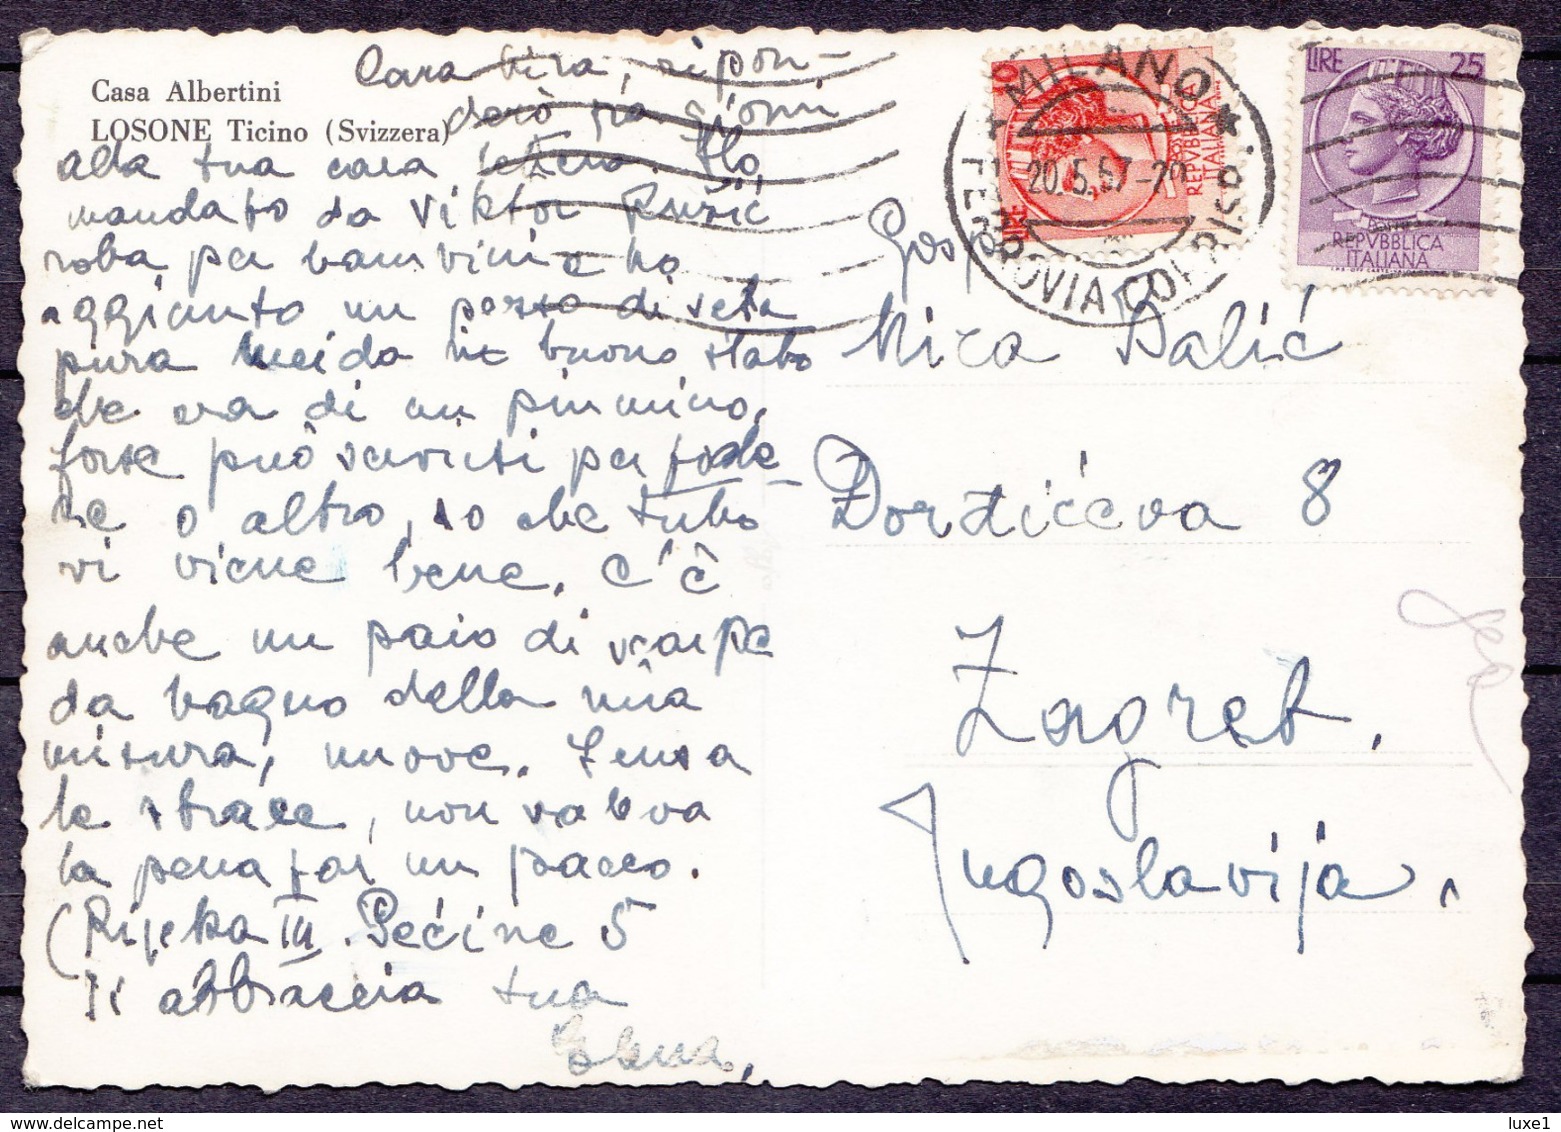 Casa Albertini
LOSONE Ticino (Svizzera)
Cara Vira, rispon-
derò fra giorni
alla tua cara lettera. Ho
mandato da Viktor Ružić
roba per bambini e ho
aggiunto un pezzo di seta
pura in buono stato
che era di un piumino,
forse può servirti per fode-
re o altro, so che tutto
vi viene bene. C'è
anche un paio di scarpe
da bagno della mia
misura, nuove. Senza
le strace, non valeva
la pena far un pacco.
(Rijeka III. Pećine 5
Ti abbraccia tua
Elena,
MILANO
20.5.57
FERROVIA CORRISP.
LIRE 10
REPVBBLICA
ITALIANA
LIRE 25
REPVBBLICA
ITALIANA
Gosp
Mira Dalić
Đorđićeva 8
Zagreb,
Jugoslavija.
luxe1